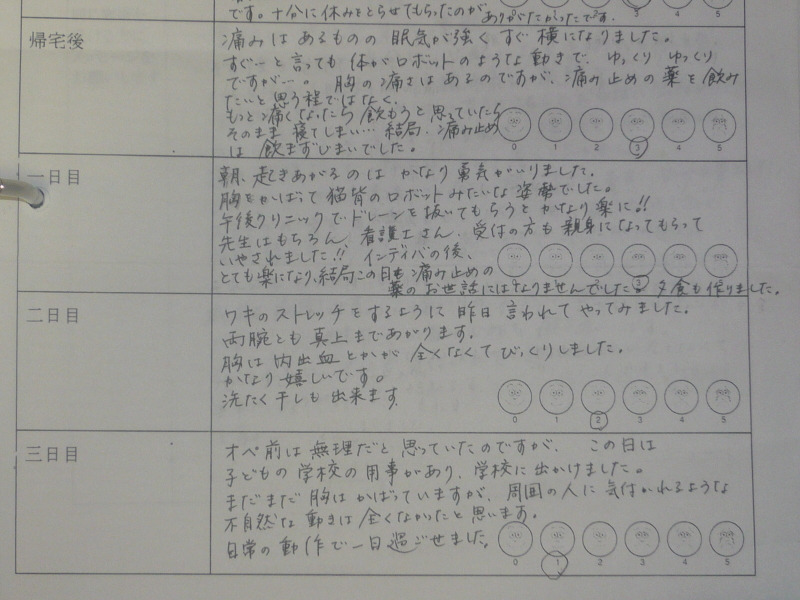 です。十分に休みをとらせてもらったのが、ありがたかったです。
3 4 5
帰宅後
痛みはあるものの眠気が強くすぐ横になりました。
すぐ…と言っても体がロボットのような動きで、ゆっくりゆっくり
ですが…。胸の痛さはあるのですが、痛み止めの薬を飲み
たいと思う程ではなく、
もっと痛くなったら飲もうと思っていたら
そのまま寝てしまい…結局、痛み止め
は飲まずじまいでした。
0 1 2 3 4 5
一日目
朝、起きあがるのはかなり勇気がいりました。
胸をかばって猫背のロボットみたいな姿勢でした。
午後クリニックでドレーンを抜いてもらうとかなり楽に!!
先生はもちろん、看護士さん、受付の方も親身になってもらって
いやされました!! インディバの後、
とても楽になり、結局この日も痛み止めの
薬のお世話にはなりませんでした。夕食も作りました。
3
二日目
ワキのストレッチをするように昨日言われてやってみました。
両腕とも真上まであがります。
胸は内出血とかが全くなくてびっくりしました。
かなり嬉しいです。
洗たく干しも出来ます
0 1 2 3 4 5
三日目
オペ前は無理だと思っていたのですが、この日は
子どもの学校の用事があり、学校に出かけました。
まだまだ胸はかばっていますが、周囲の人に気付かれるような
不自然な動きは全くなかったと思います。
日常の動作で一日過ごせました。
0 1 2 3 4 5